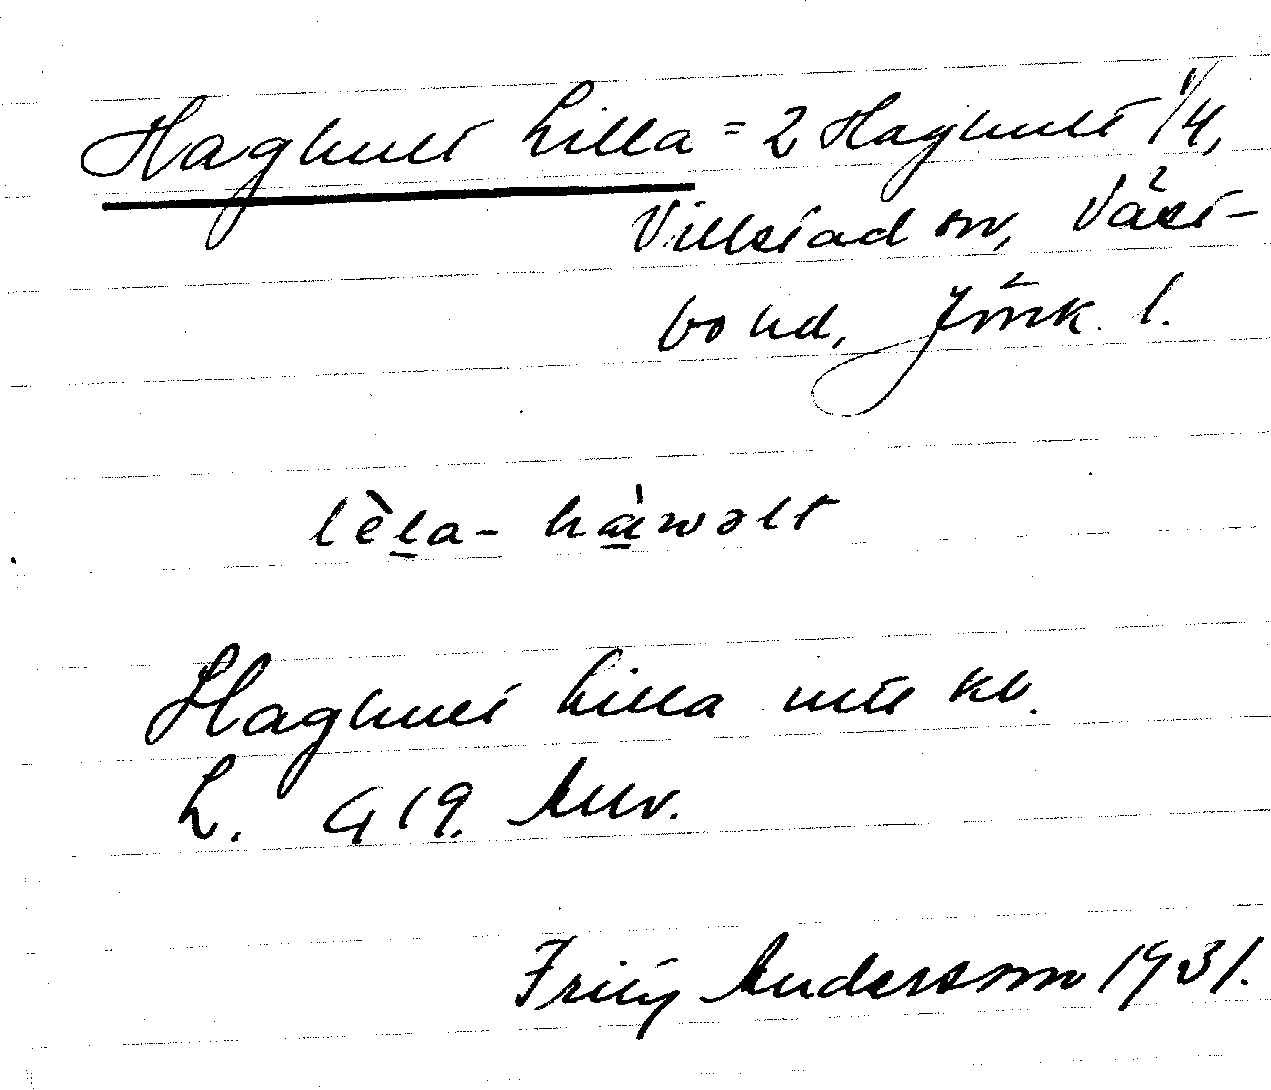 Haghult Lilla = 2 Haghult 1/4,
Villstad sn, Väst-
bo hd, Jönk. l.
lèla- hàwəlt
Haghult Lilla intr kb.
L. G 19. Allv.
Fritz Andersson 1931.